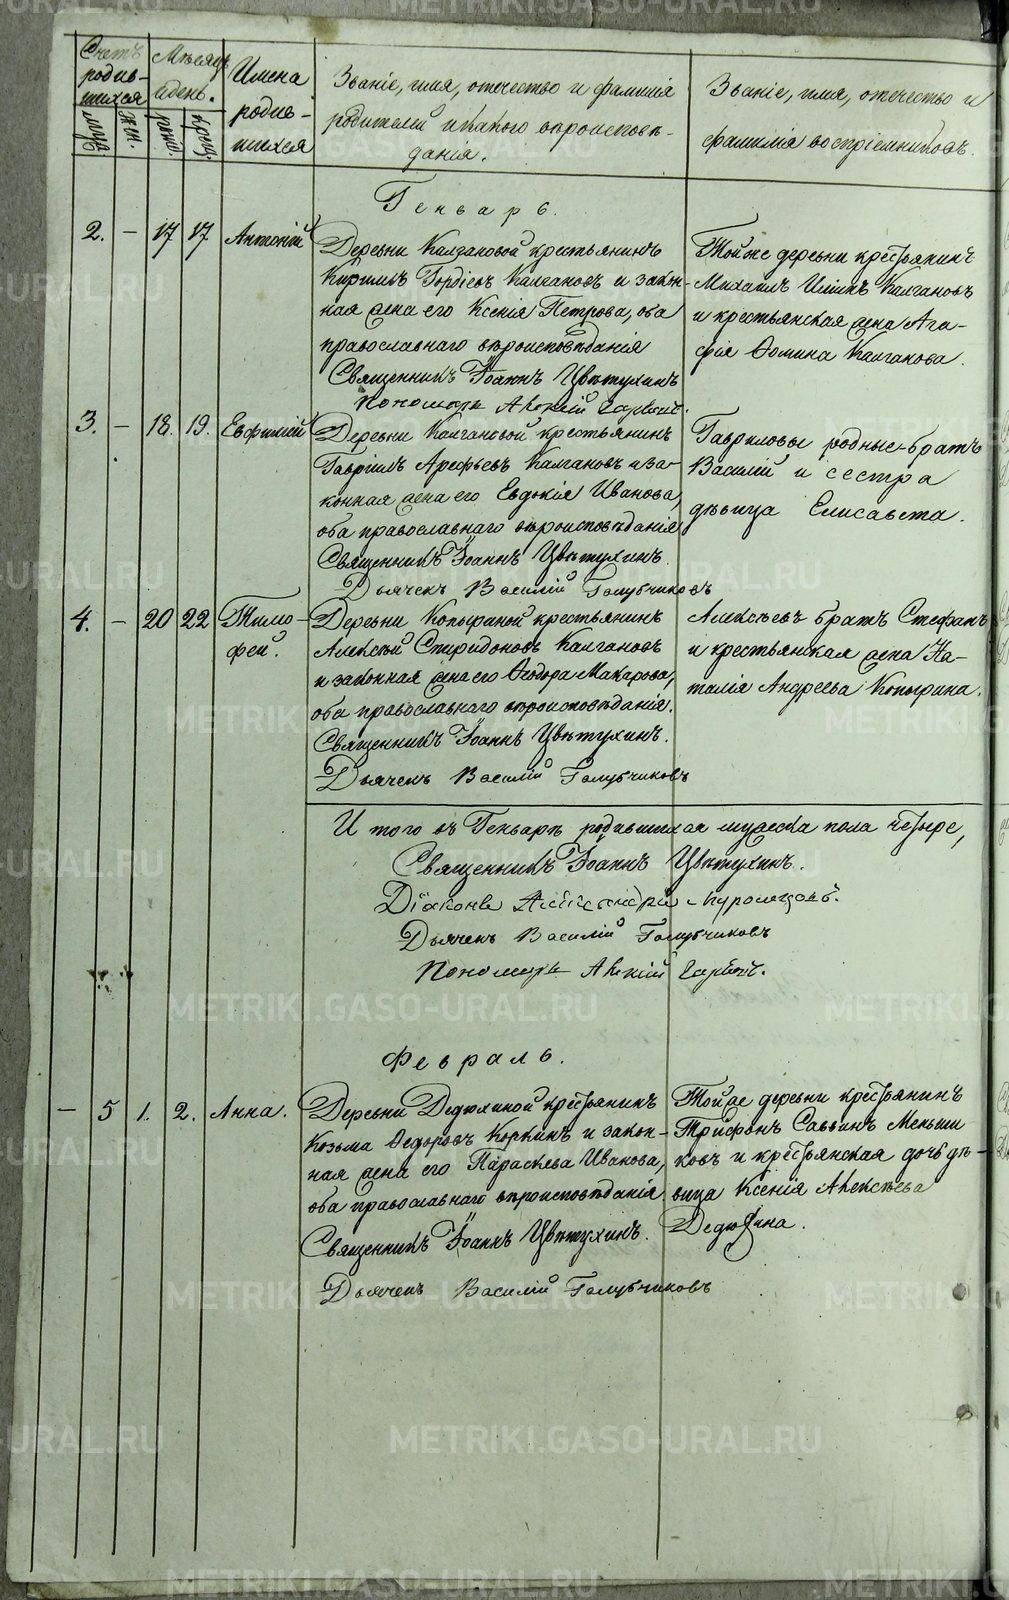 Счетъ родив-шихся
Мѣсяцъ и день.
Имена родив-шихся
Званіе, имя, отчество и фамилія
родителей и какого вѣроисповѣ-
данія.
Званіе, имя, отчество и
фамилія воспріемниковъ.
Генварь.
2. — 17 17 Антоній
Деревни Калгановой крестьянинъ
Кириллъ Гордіевъ Калгановъ и закон-
ная жена его Ксенія Петрова, оба
православнаго вѣроисповѣданія
Священникъ Іоаннъ Цвѣтухинъ
Пономарь
Тойже деревни крестьянинъ
Михаилъ Калгановъ
и крестьянская жена Ага-
фія Ѳомина Калганова.
3. — 18. 19. Евфимій
Деревни Калгановой крестьянинъ
Гавріилъ Арефьевъ Калгановъ и за-
конная жена его Евдокія Иванова,
оба православнаго вѣроисповѣданія
Священникъ Іоаннъ Цвѣтухинъ.
Дьячекъ Василій Голубчиковъ
Гавриловы родные братъ
Василій и сестра
дѣвица Елисавета.
4. — 20 22 Тимо-
фей.
Деревни Копыриной крестьянинъ
Алексѣй Спиридоновъ Калгановъ
и законная жена его Ѳеодора Макарова,
оба православнаго вѣроисповѣданія.
Священникъ Іоаннъ Цвѣтухинъ.
Дьячекъ Василій Голубчиковъ
Алексѣевъ братъ Стефанъ
и крестьянская жена На-
талія Андреева Копырина.
И того въ Генварѣ родившихся мужеска пола четыре,
Священникъ Іоаннъ Цвѣтухинъ.
Діаконъ
Дьячекъ Василій Голубчиковъ
Пономарь
Февраль.
— 5 1. 2. Анна.
Деревни Дедюхиной крестьянинъ
Козьма Ѳедоровъ Коркинъ и закон-
ная жена его Параскева Иванова,
оба православнаго вѣроисповѣданія
Священникъ Іоаннъ Цвѣтухинъ.
Дьячекъ Василій Голубчиковъ
Тойже деревни крестьянинъ
Трифонъ Саввинъ Меньши
ковъ и крестьянская дочь дѣ-
вица Ксенія Алексѣева
Дедюхина.
METRIKI.GASO-URAL.RU